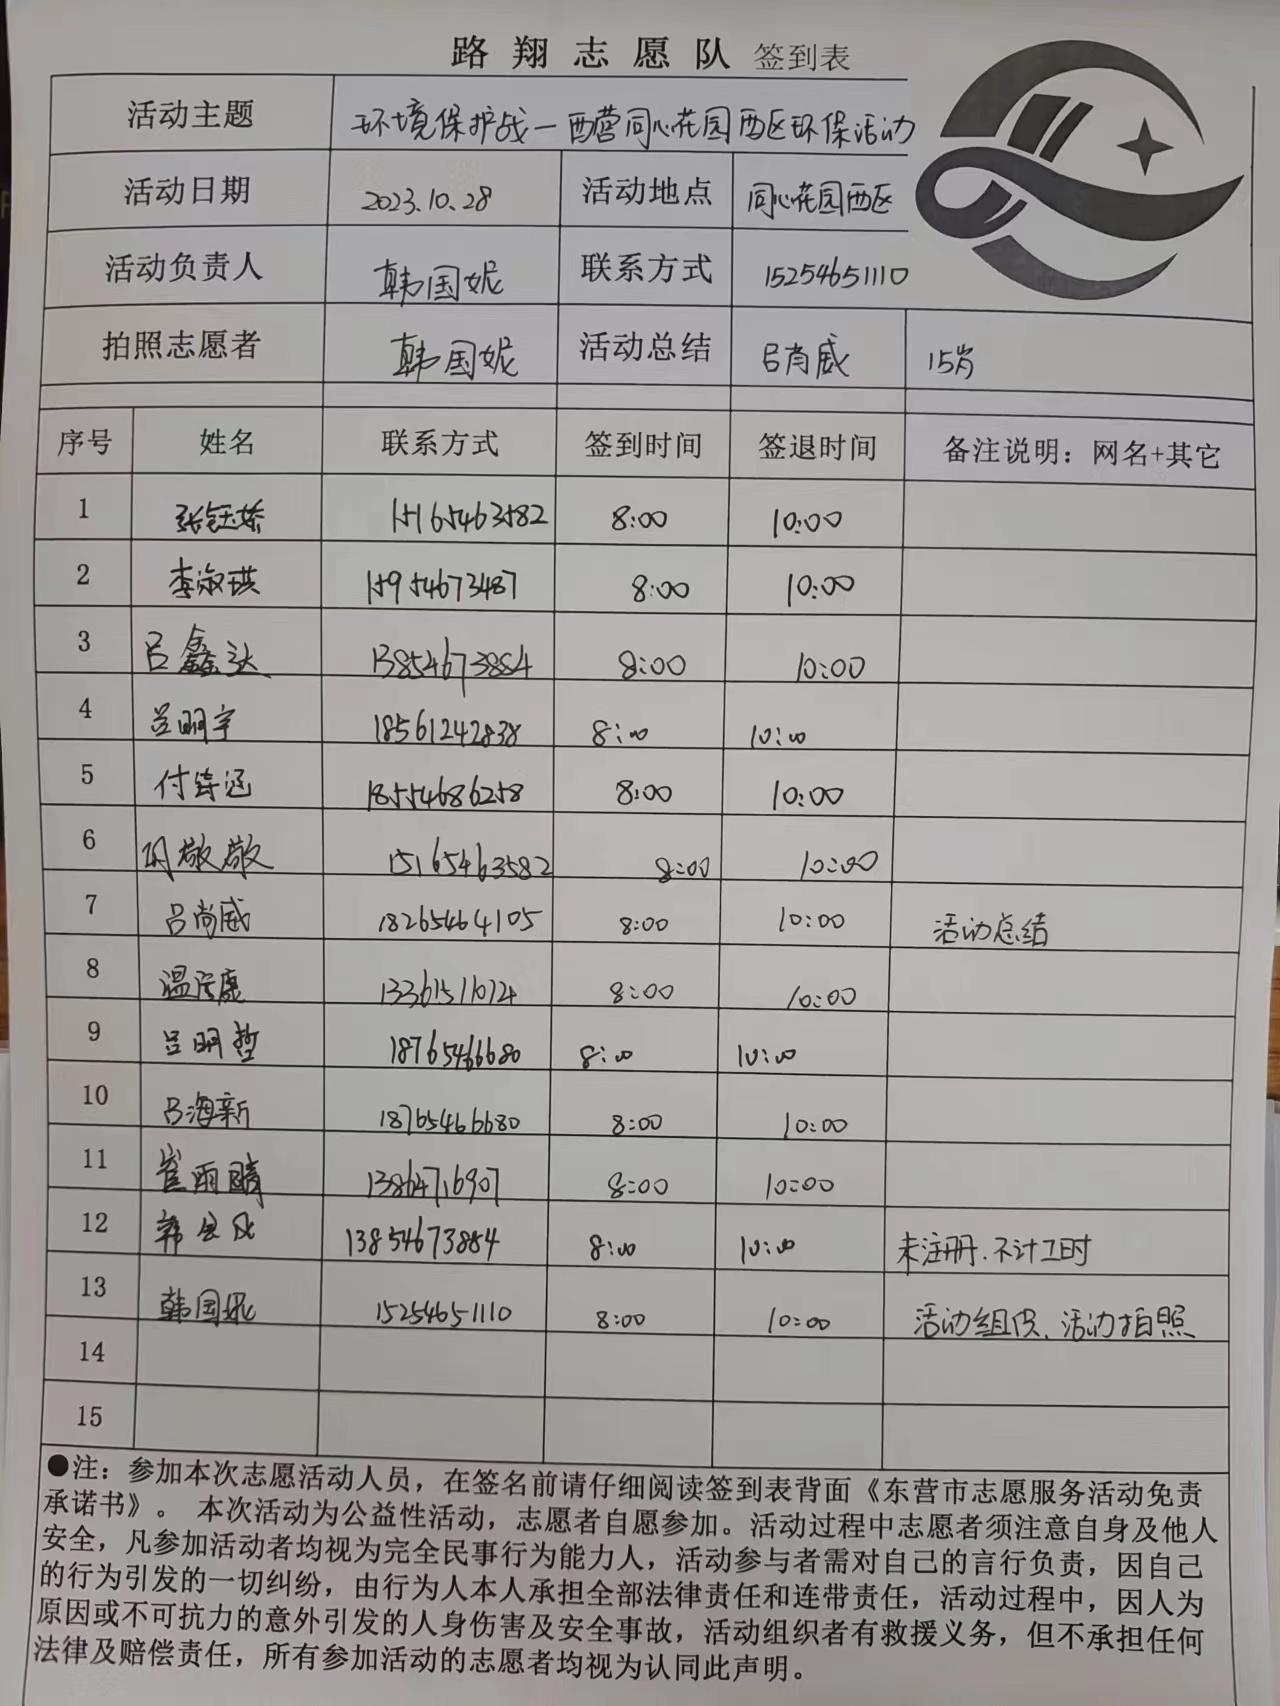 路翔志愿队 签到表
活动主题 环境保护战一西营同心花园西区环保活动
活动日期 2023.10.28 活动地点 同心花园西区
活动负责人 韩国妮 联系方式 15254651110
拍照志愿者 韩国妮 活动总结 吕尚威 15岁
序号 姓名 联系方式 签到时间 签退时间 备注说明：网名+其它
1 张钰娇 15165463582 8:00 10:00
2 李淑琪 15954673487 8:00 10:00
3 吕鑫达 13854673884 8:00 10:00
4 吕明宇 18561242838 8:00 10:00
5 付诗涵 18554686258 8:00 10:00
6 敬敬 15165463582 8:00 10:00
7 吕尚威 18265464105 8:00 10:00 活动总结
8 温 康 13361511072 8:00 10:00
9 吕明哲 18765466680 8:00 10:00
10 吕海新 18765466680 8:00 10:00
11 崔雨晴 13864716907 8:00 10:00
12 韩 13854673884 8:00 10:00 未注册、不计工时
13 韩国妮 15254651110 8:00 10:00 活动组织、活动拍照
14
15
●注：参加本次志愿活动人员，在签名前请仔细阅读签到表背面《东营市志愿服务活动免责
承诺书》。 本次活动为公益性活动，志愿者自愿参加。活动过程中志愿者须注意自身及他人
安全，凡参加活动者均视为完全民事行为能力人，活动参与者需对自己的言行负责，因自己
的行为引发的一切纠纷，由行为人本人承担全部法律责任和连带责任，活动过程中，因人为
原因或不可抗力的意外引发的人身伤害及安全事故，活动组织者有救援义务，但不承担任何
法律及赔偿责任，所有参加活动的志愿者均视为认同此声明。